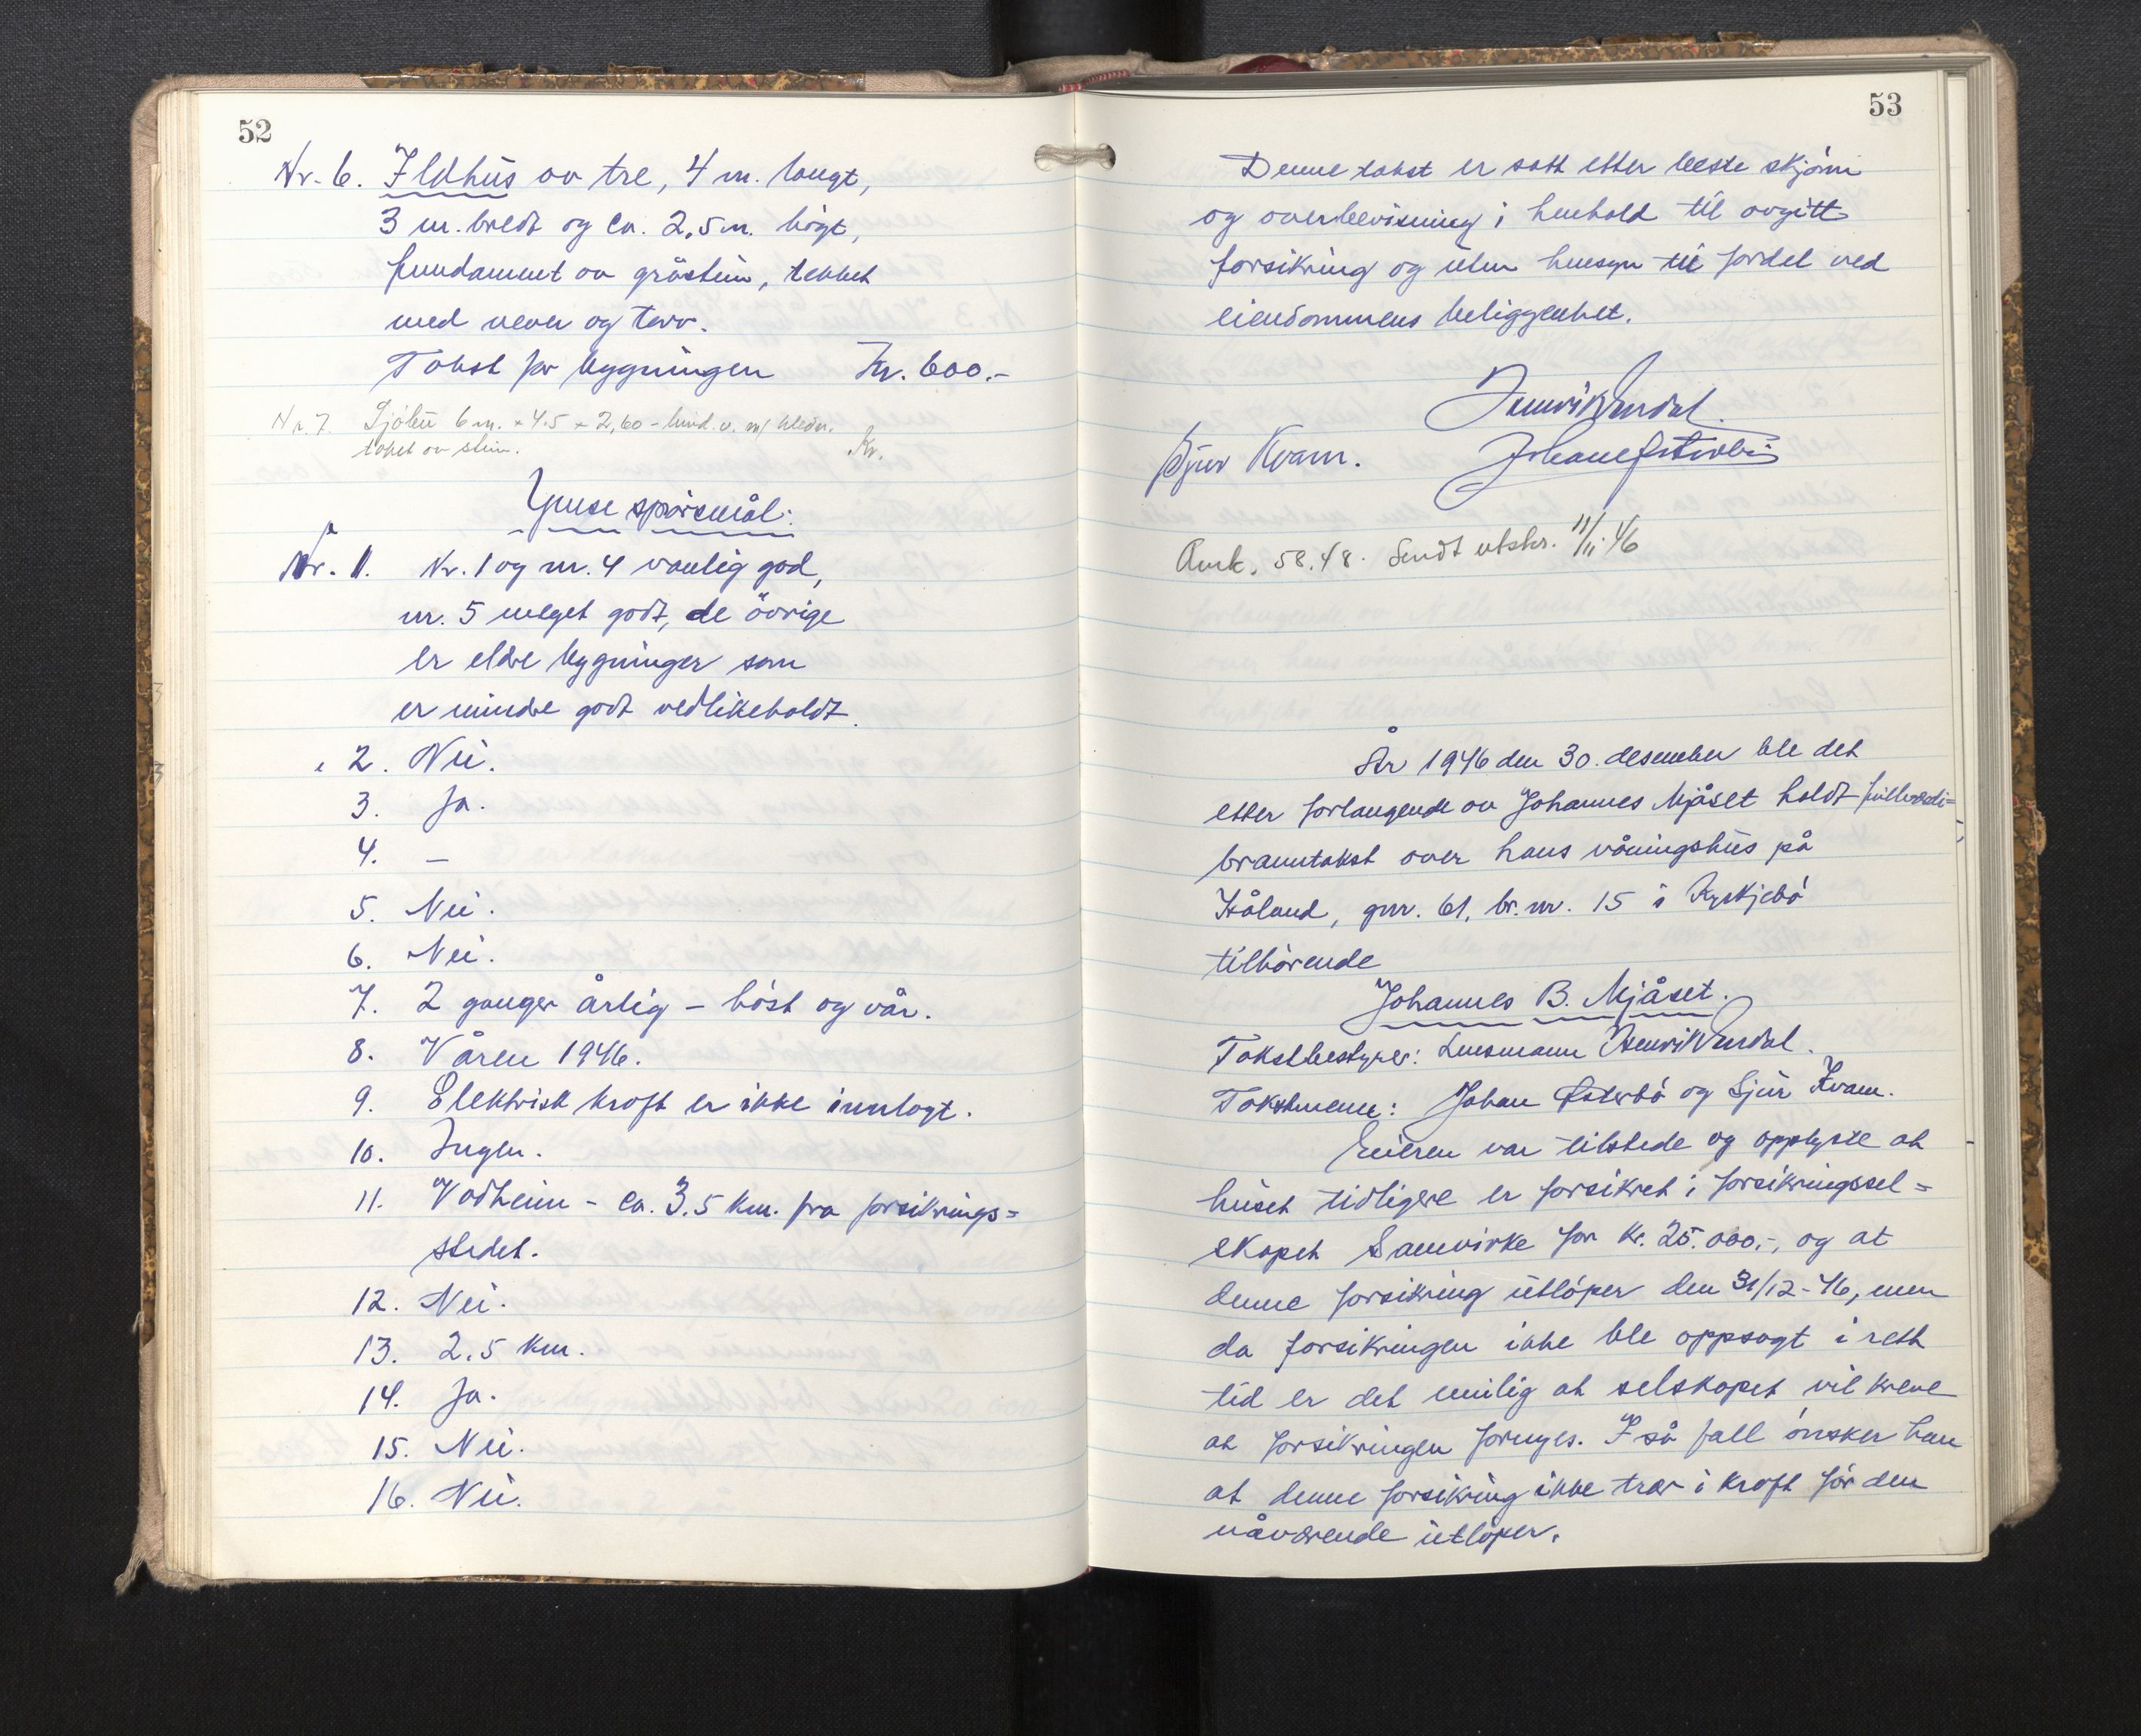 52
Nr. 6. Ildhus av tre, 4 m. langt,
3 m. bredt og ca. 2,5 m. högt,
fundament av gråstein, tekket
med never og torv.
Takst for bygningen Kr. 600.-
Nr. 7. Sjöbu 6 m. × 4.5 × 2,60 - bind. v. m/ kledn.
taket av stein. Kr.
Ymse spörsmål:
Nr. 1. Nr. 1 og nr. 4 vanlig god,
nr. 5 meget godt, de övrige
er eldre bygninger som
er mindre godt vedlikeholdt.
2. Nei.
3. Ja.
4. —
5. Nei.
6. Nei.
7. 2 ganger årlig - höst og vår.
8. Våren 1946.
9. Elektrisk kraft er ikke innlagt.
10. Ingen.
11. Vadheim - ca. 3.5 km. fra forsikrings=
stedet.
12. Nei.
13. 2,5 km.
14. Ja.
15. Nei.
16. Nei.
53
Denne takst er satt etter beste skjönn
og overbevisning i henhold til avgitt
forsikring og uten hensyn til fordel ved
eiendommens beliggenhet.
Henrik Endal.
Sjur Kvam. Johan Østerbö
Ank. 58.48. Sendt utskr. 11/11.46
År 1946 den 30. desember ble det
etter forlangende av Johannes Mjåset holdt fullverdi=
branntakst over hans våningshus på
Håland, gnr. 61, br.nr. 15 i Kyrkjebö
tilhörende
Johannes B. Mjåset.
Takstbestyrer: Lensmann Henrik Endal.
Takstmenn: Johan Østerbö og Sjur Kvam.
Eieren var tilstede og opplyste at
huset tidligere er forsikret i forsikringssel=
skapet Samvirke for kr. 25.000.-, og at
denne forsikring utlöper den 31/12-46, men
da forsikringen ikke ble oppsagt i rett
tid er det mulig at selskapet vil kreve
at forsikringen fornyes. I så fall önsker han
at denne forsikring ikke trer i kraft för den
nåværende utlöper.